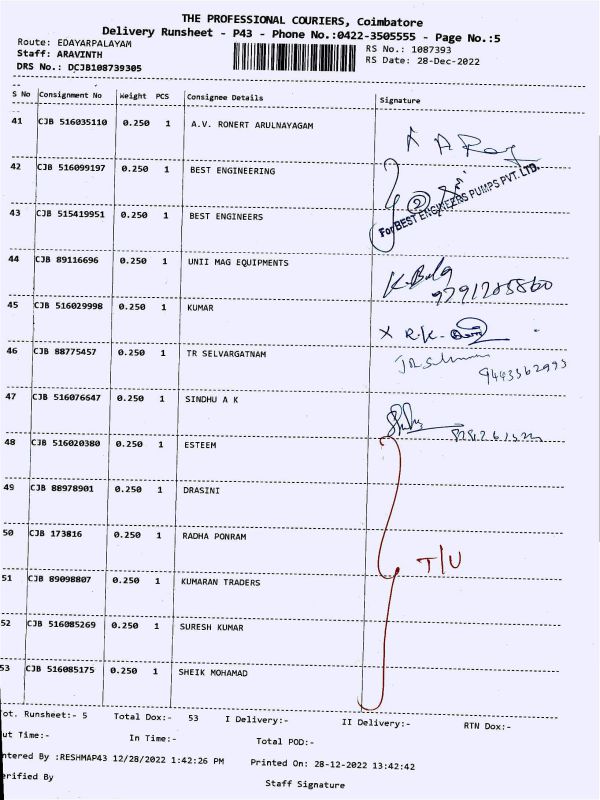 THE PROFESSIONAL COURIERS, Coimbatore
Delivery Runsheet - P43 - Phone No.:0422-3505555 - Page No.:5
Route: EDAYARPALAYAM
RS No.: 1087393
Staff: ARAVINTH
RS Date: 28-Dec-2022
DRS No.: DCJB108739305
S No Consignment No Weight PCS Consignee Details Signature
41 CJB 516035110 0.250 1 A.V. RONERT ARULNAYAGAM
42 CJB 516099197 0.250 1 BEST ENGINEERING
2
For BEST ENGINEERS PUMPS PVT. LTD.
43 CJB 515419951 0.250 1 BEST ENGINEERS
44 CJB 89116696 0.250 1 UNII MAG EQUIPMENTS
45 CJB 516029998 0.250 1 KUMAR
46 CJB 88775457 0.250 1 TR SELVARGATNAM
47 CJB 516076647 0.250 1 SINDHU A K
48 CJB 516020380 0.250 1 ESTEEM
49 CJB 88978901 0.250 1 DRASINI
50 CJB 173816 0.250 1 RADHA PONRAM
T/U
51 CJB 89098807 0.250 1 KUMARAN TRADERS
52 CJB 516085269 0.250 1 SURESH KUMAR
53 CJB 516085175 0.250 1 SHEIK MOHAMAD
ot. Runsheet:- 5 Total Dox:- 53 I Delivery:- II Delivery:- RTN Dox:-
ut Time:- In Time:- Total POD:-
ntered By :RESHMAP43 12/28/2022 1:42:26 PM Printed On: 28-12-2022 13:42:42
erified By Staff Signature